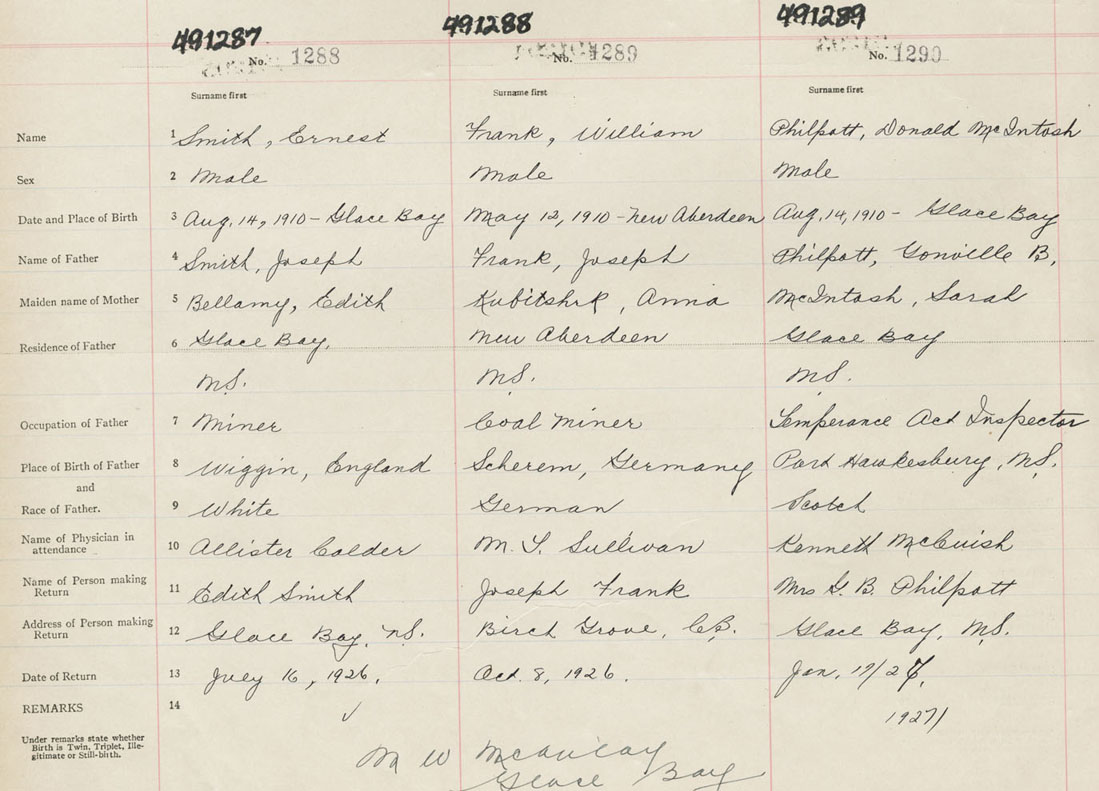 491287 491288 491289
No. 1288 No. 1289 No. 1290
Surname first Surname first Surname first
Name 1 Smith, Ernest Frank, William Philpott, Donald McIntosh
Sex 2 Male Male Male
Date and Place of Birth 3 Aug. 14, 1910 - Glace Bay May 12, 1910 - New Aberdeen Aug. 14, 1910 - Glace Bay
Name of Father 4 Smith, Joseph Frank, Joseph Philpott, Gonville B.
Maiden name of Mother 5 Bellamy, Edith Kubitshek, Anna McIntosh, Sarah
Residence of Father 6 Glace Bay, New Aberdeen Glace Bay
N.S. N.S. N.S.
Occupation of Father 7 Miner Coal Miner Temperance Act Inspector
Place of Birth of Father 8 Wiggin, England Scherem, Germany Port Hawkesbury, N.S.
and
Race of Father. 9 White German Scotch
Name of Physician in
attendance 10 Allister Calder M. T. Sullivan Kenneth McCuish
Name of Person making
Return 11 Edith Smith Joseph Frank Mrs G. B. Philpott
Address of Person making
Return 12 Glace Bay, N.S. Birch Grove, C.B. Glace Bay, N.S.
Date of Return 13 July 16, 1926. Oct. 8, 1926. Jan. 19/27.
REMARKS 14
1927/
Under remarks state whether
Birth is Twin, Triplet, Ille-
gitimate or Still-birth.
M W McAulay
Glace Bay